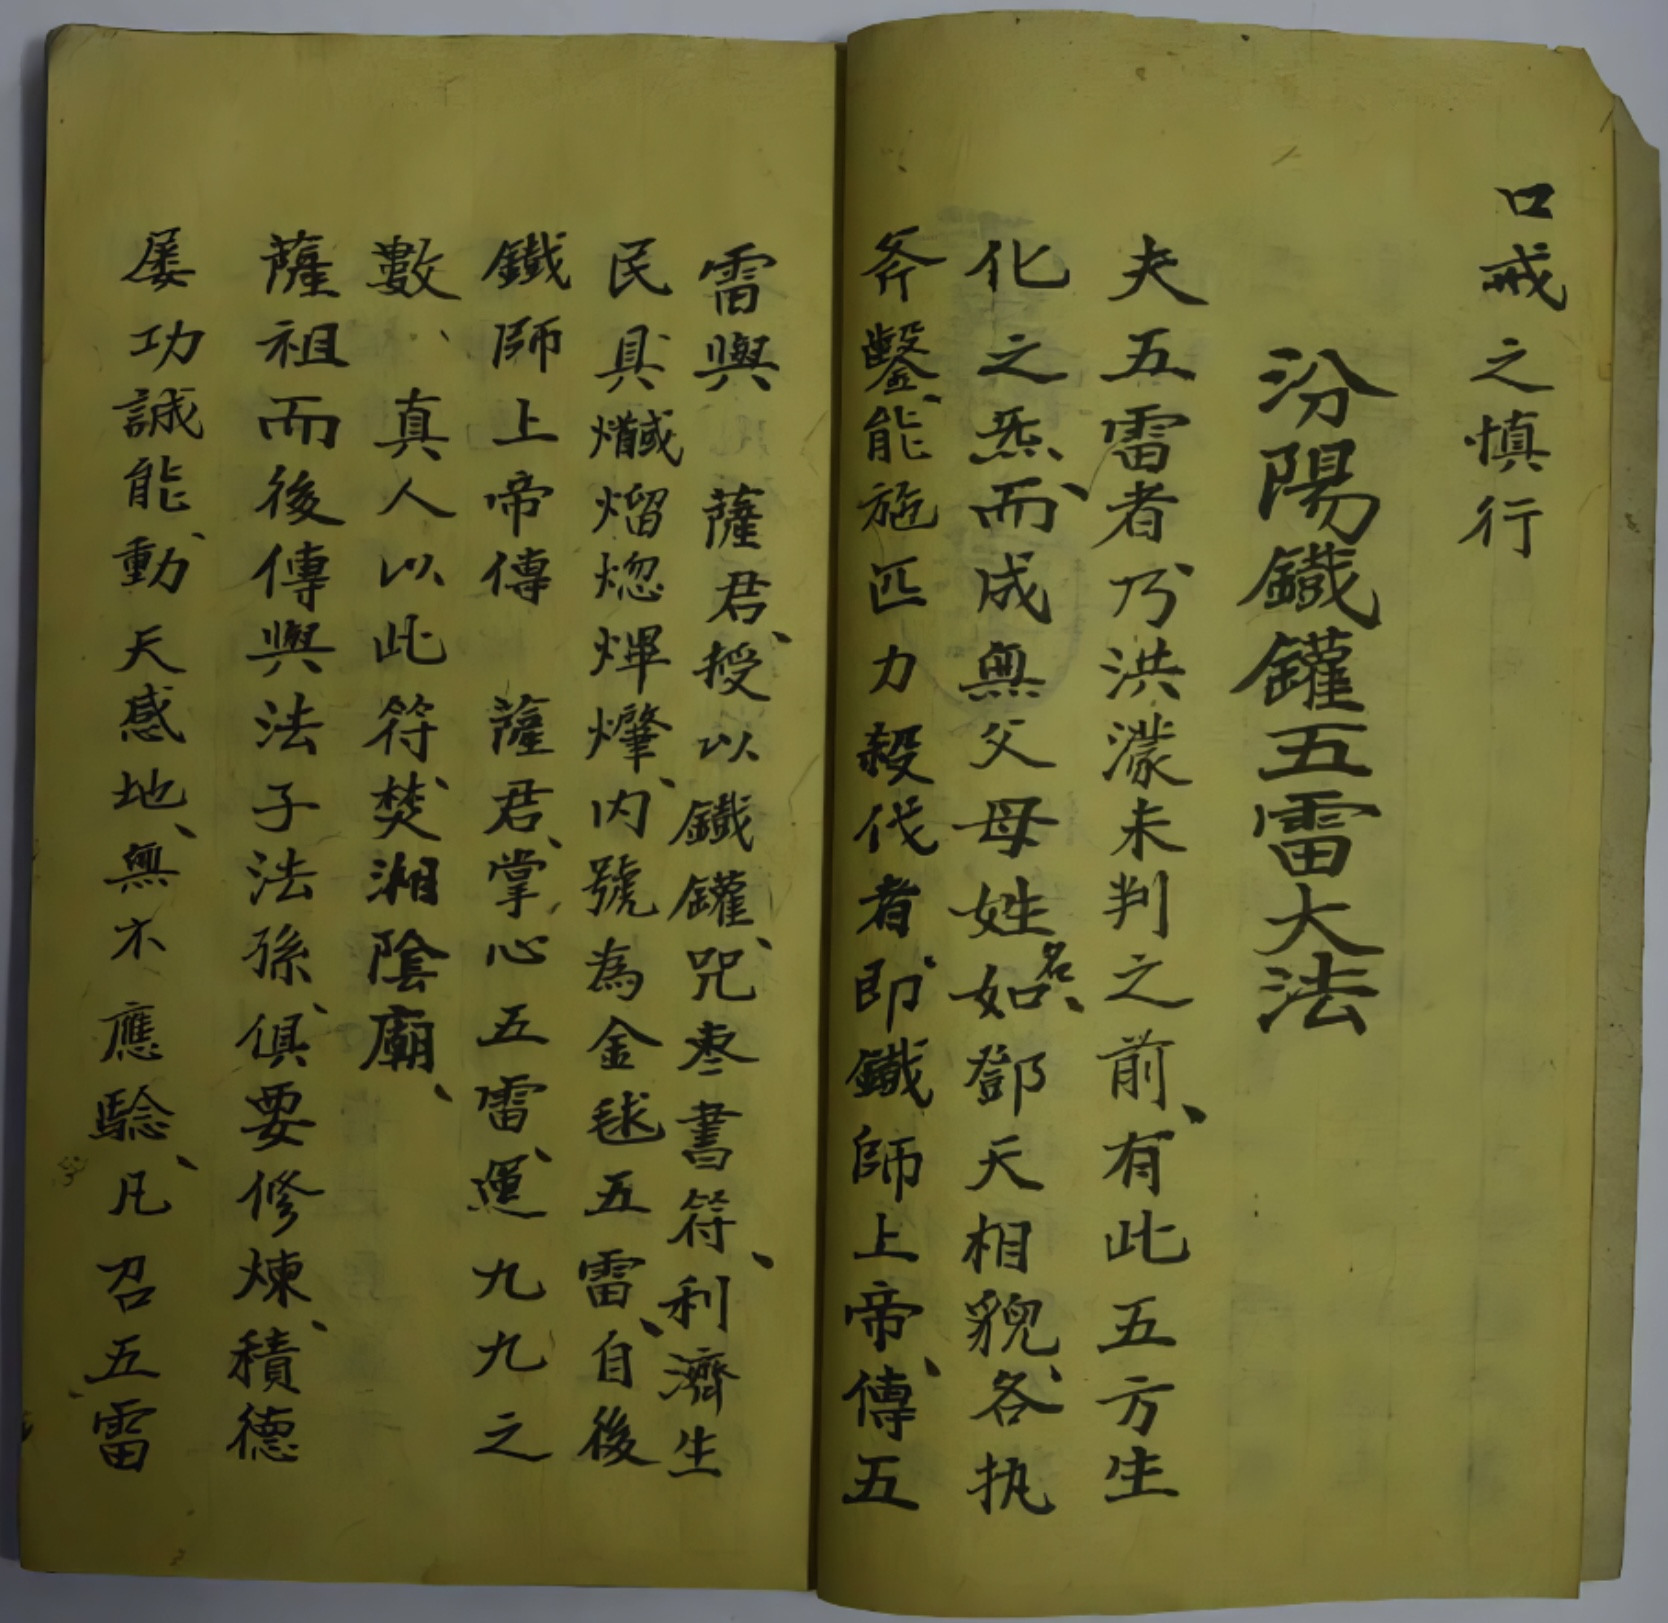 口戒之慎行
汾陽鐵鑵五雷大法
夫五雷者乃洪濛未判之前、有此五方生
化之炁而、成無父母姓名、如鄧天相貌、各执
斧鑿、能施匹力殺伐者、即鐵師上帝、傳五
雷與 薩君、授以鐵鑵、咒枣書符、利濟生
民具熠㷓、內號為金毬五雷、自後
鐵師上帝傳 薩君、掌心五雷、運九九之
數、真人以此符焚、湘陰廟、
薩祖而後傳與法子法孫、俱要修煉、積德
屡功誠能、動天感地、無不應驗、凡召五雷